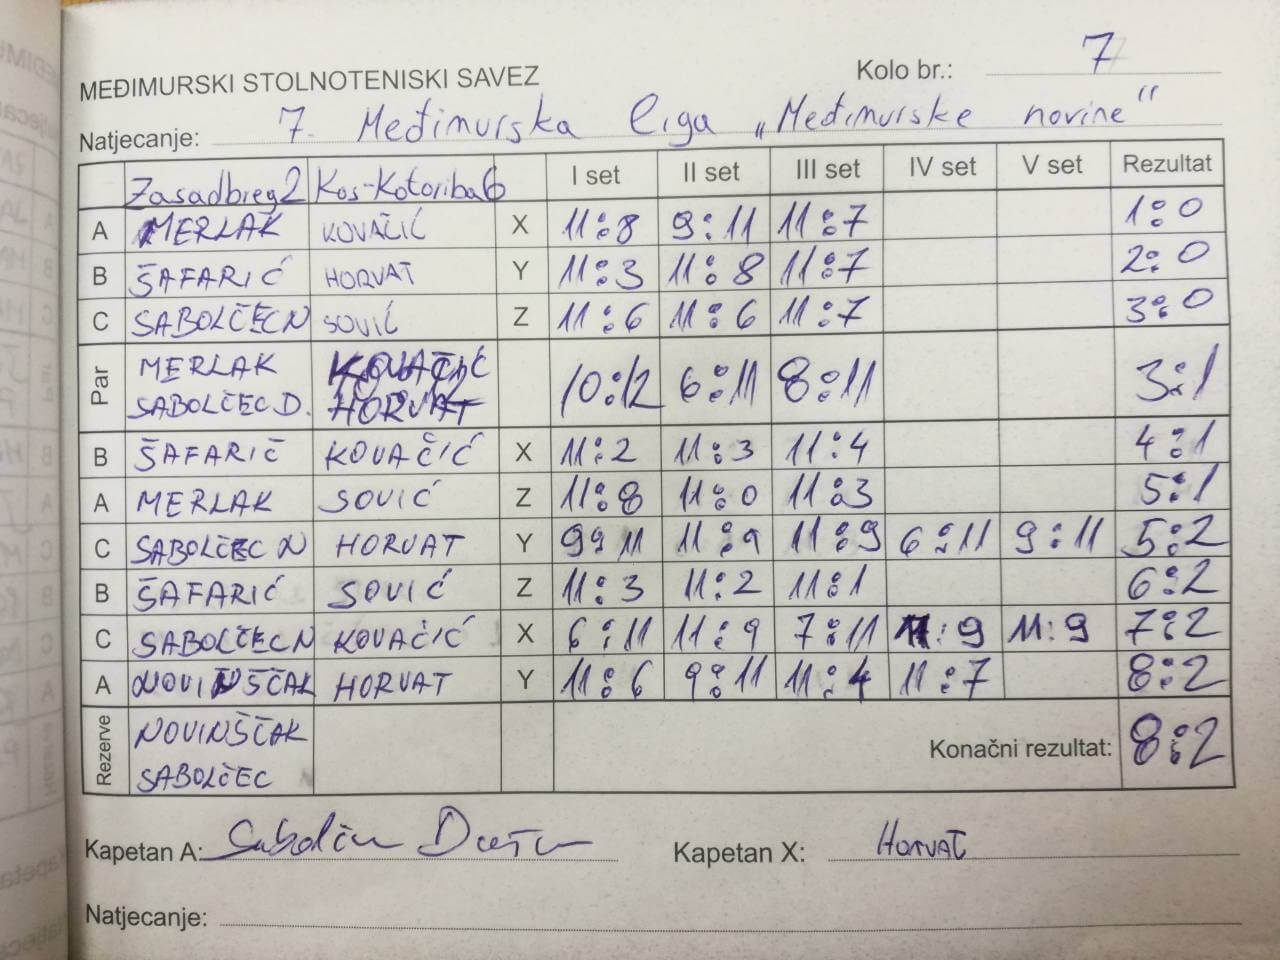 MEĐIMURSKI STOLNOTENISKI SAVEZ Kolo br.: 7
Natjecanje: 7. Međimurska liga „Međimurske novine"
Zasadbreg 2 Kos-Kotoriba 6 I set II set III set IV set V set Rezultat
A MERLAK KOVAČIĆ X 11:8 9:11 11:7 1:0
B ŠAFARIĆ HORVAT Y 11:3 11:8 11:7 2:0
C SABOLČEC N SOVIĆ Z 11:6 11:6 11:7 3:0
Par MERLAK KOVAČIĆ 10:12 6:11 8:11 3:1
SABOLČEC D. HORVAT
B ŠAFARIČ KOVAČIĆ X 11:2 11:3 11:4 4:1
A MERLAK SOVIĆ Z 11:8 11:0 11:3 5:1
C SABOLČEC N HORVAT Y 9:11 11:9 11:9 6:11 9:11 5:2
B ŠAFARIĆ SOVIĆ Z 11:3 11:2 11:1 6:2
C SABOLČEC N KOVAČIĆ X 6:11 11:9 7:11 11:9 11:9 7:2
A NOVINŠČAK HORVAT Y 11:6 9:11 11:4 11:7 8:2
Rezerve NOVINŠČAK Konačni rezultat: 8:2
SABOLČEC
Kapetan A: Kapetan X: HORVAT
Natjecanje: